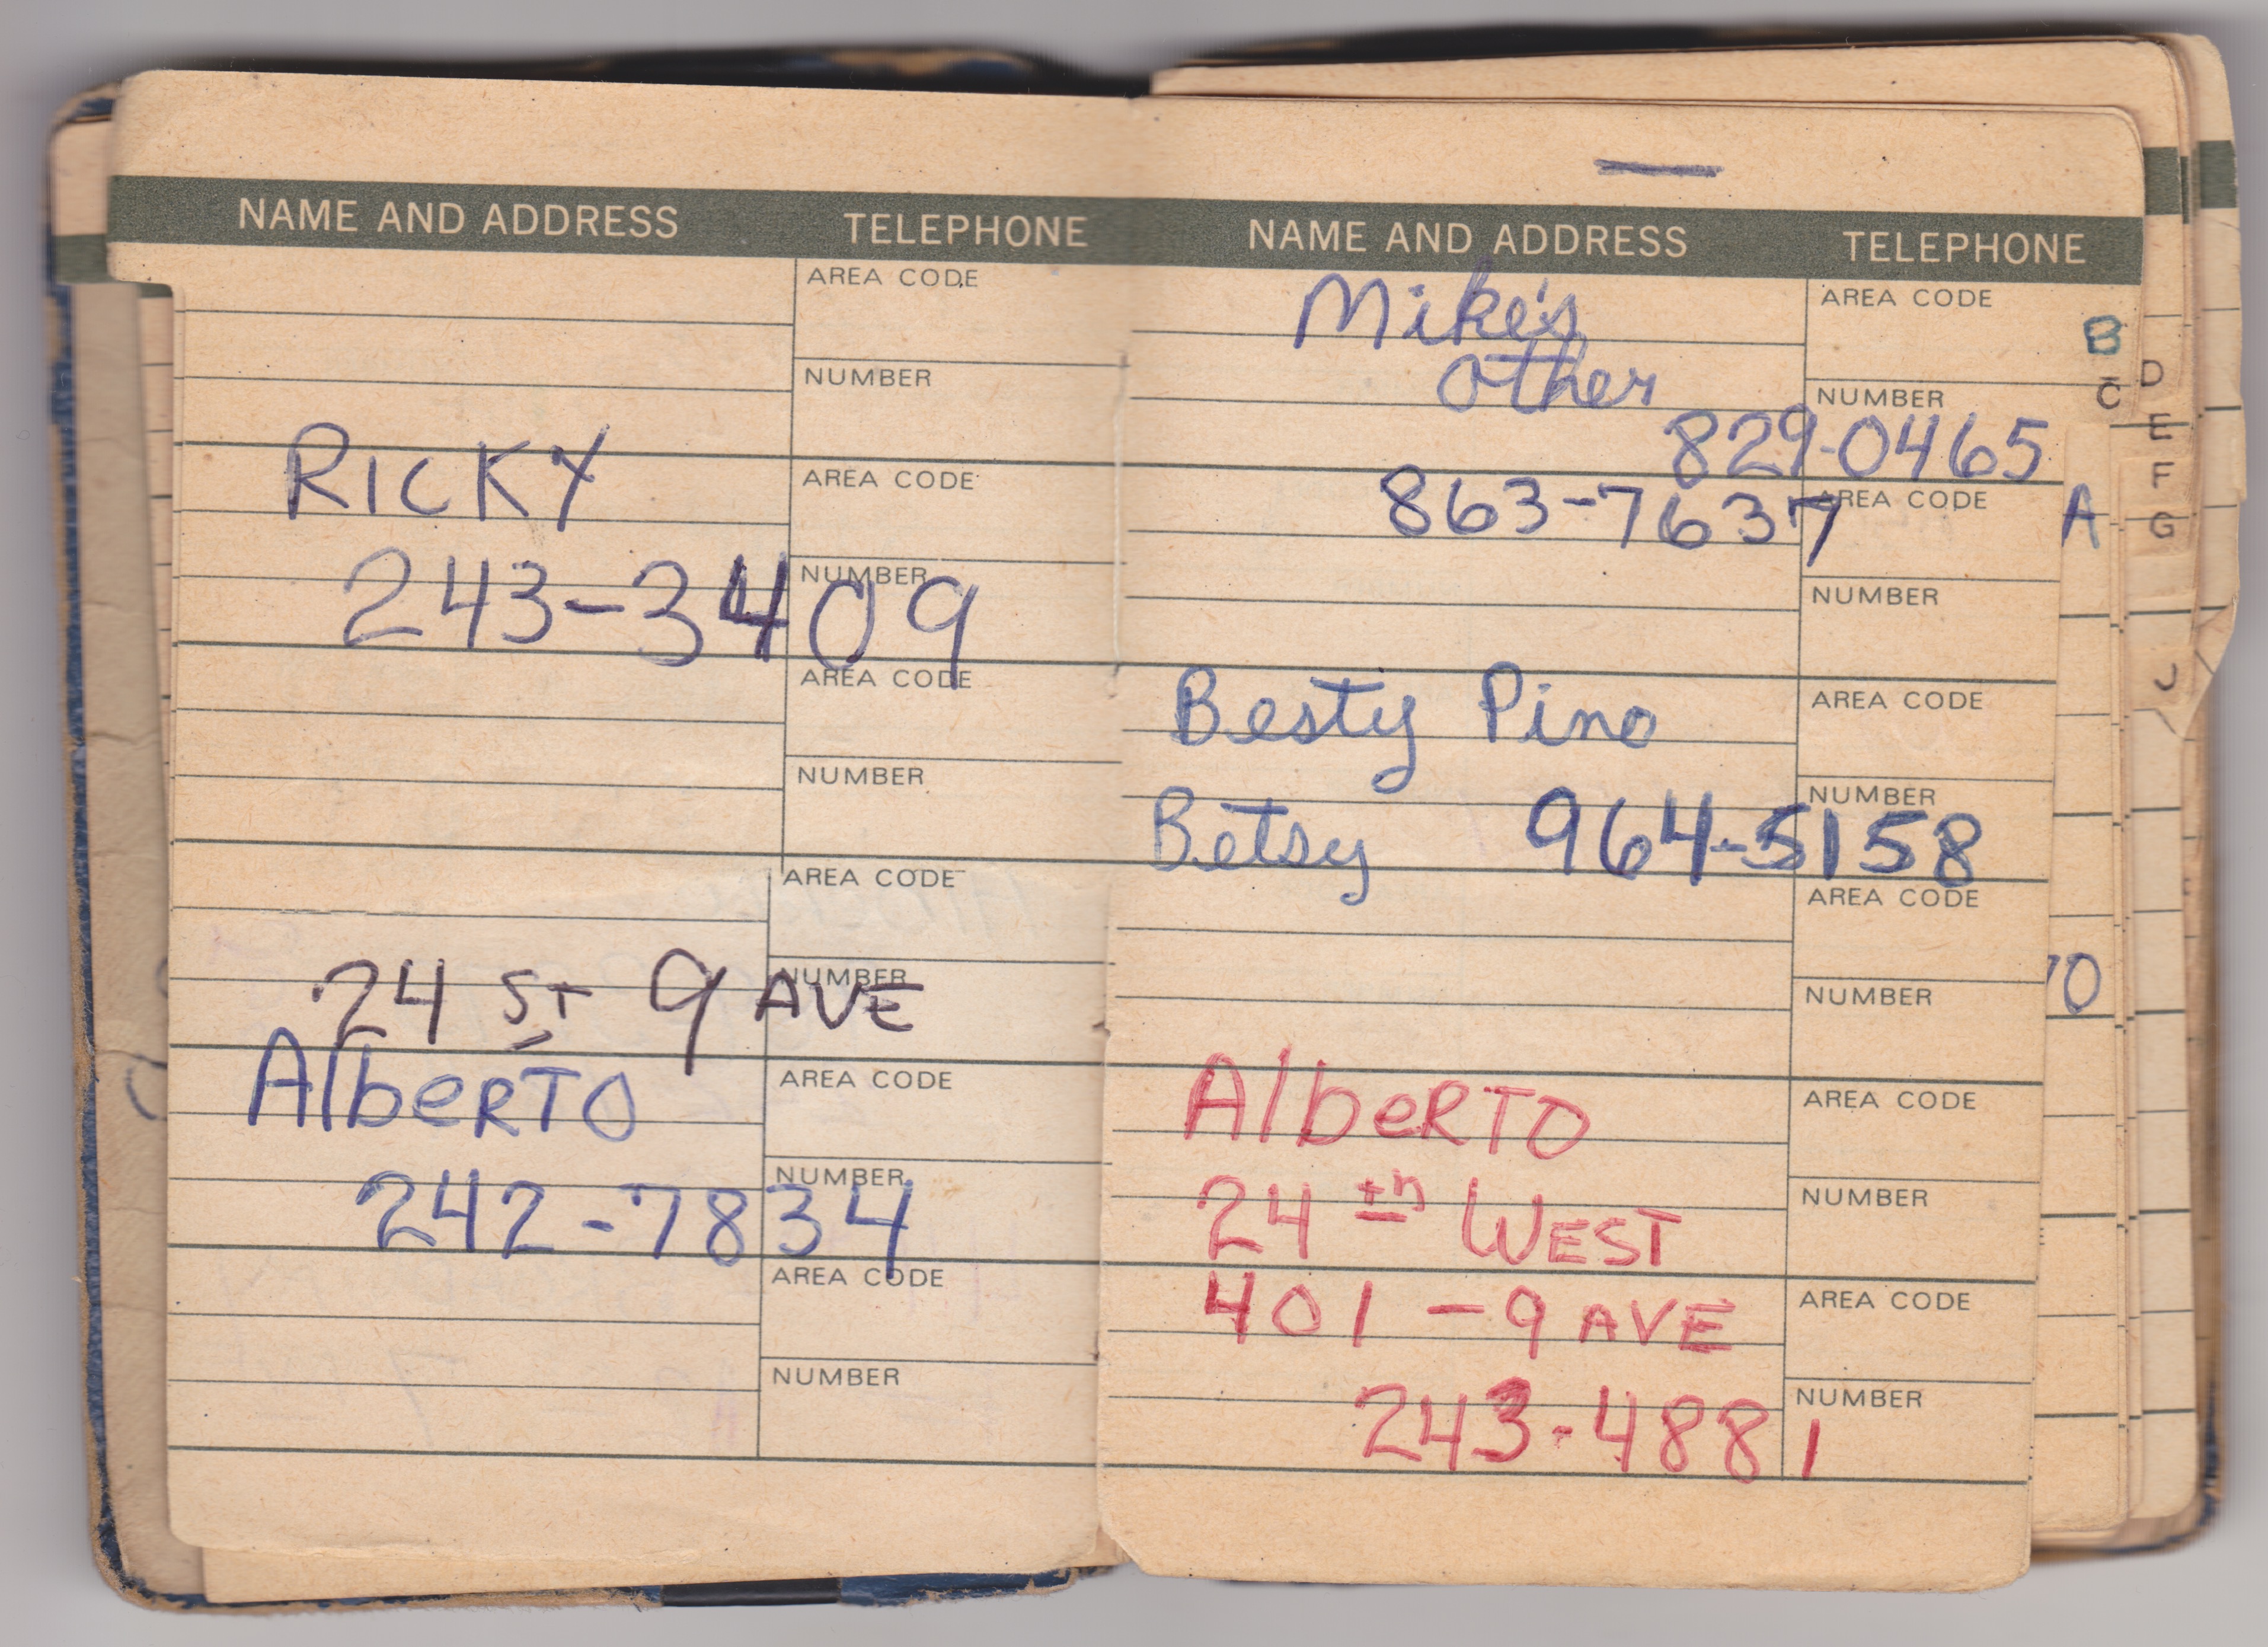 NAME AND ADDRESS TELEPHONE
AREA CODE
NUMBER
RICKY
AREA CODE
NUMBER
243-3409
AREA CODE
NUMBER
AREA CODE
NUMBER
24 ST 9 AVE
AlbeRTO
AREA CODE
NUMBER
242-7834
AREA CODE
NUMBER
NAME AND ADDRESS TELEPHONE
Mike's
AREA CODE
other
NUMBER
829-0465
863-7637
AREA CODE
NUMBER
Besty Pino
AREA CODE
NUMBER
Betsy 964-5158
AREA CODE
NUMBER
AlbeRTO
AREA CODE
24th WEST
NUMBER
401-9 AVE
AREA CODE
NUMBER
243-4881
B
C
A
D
E
F
G
J
70